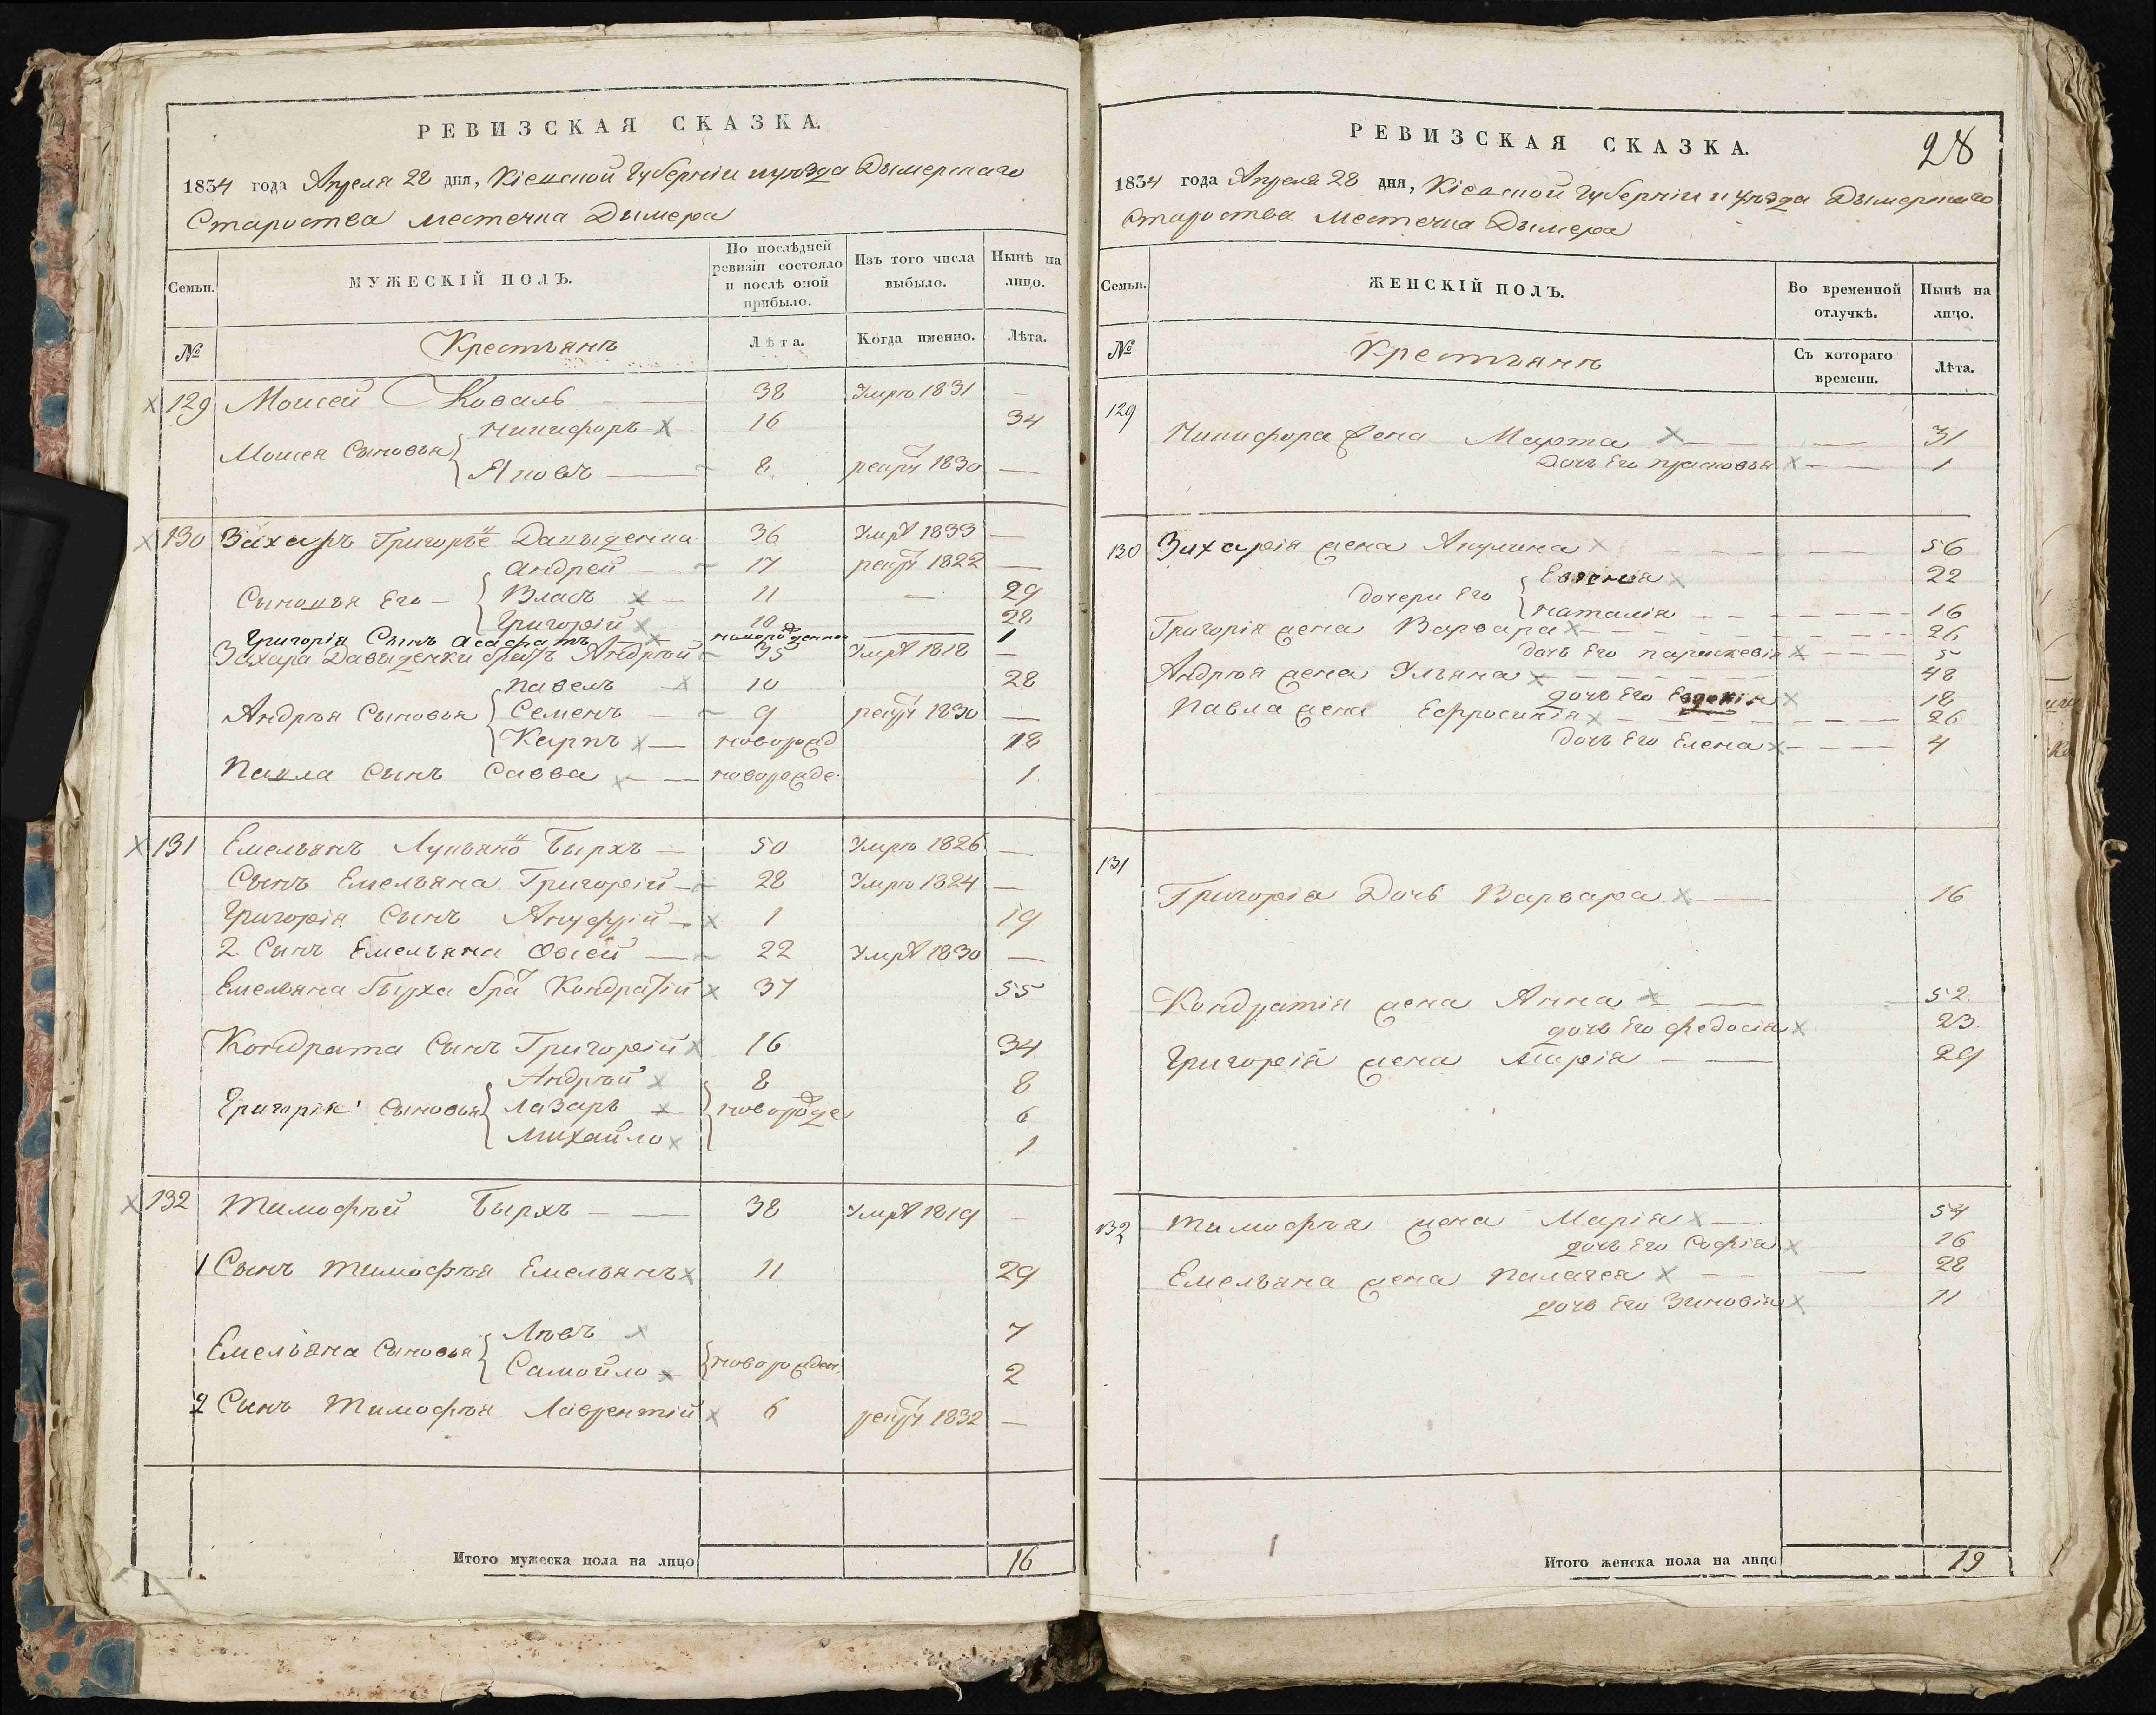 РЕВИЗСКАЯ СКАЗКА.
1834 года Апреля 28 дня, Кіевской Губерніи и уезда Дымерскаго
Староства местечка Дымера
Семьи. МУЖЕСКІЙ ПОЛЪ. По послѣдней ревизіи состояло и послѣ оной прибыло. Изъ того числа выбыло. Нынѣ на лицо.
№ Крестьянъ Лѣта. Когда именно. Лѣта.
129 Моисей Коваль — 38 Умре 1831 —
Моисея Сыновья { Никифоръ 16 34
Яковъ — 8 рекрут 1830 —
130 Захаръ Григорьё Давыденка 36 Умр 1833 —
Сыновья Его — { Андрей — 17 рекру 1822 —
Власъ 11 — 29
Григорій 10 28
Григорія Сынъ Асафатъ новорожденной — 1
Захара Давыденки братъ Андрѣй 35 Умр 1818 —
Андрѣя Сыновья { Павелъ 10 28
Семенъ — 9 рекрут 1830 —
Карпъ — новорожд 18
Павла Сынъ Савва — новорожде 1
131 Емельянъ Лукьянō Бырхъ — 50 Умре 1826 —
Сынъ Емельяна Григорій — 28 Умре 1824 —
Григорія Сынъ Ануфрій — 1 19
2 Сынъ Емельяна Овсей — 22 Умр 1830 —
Емельяна Бырха бра Кондратій 37 55
Кондрата Сынъ Григорій 16 34
Григорія Сыновья { Андрѣй 8 8
Лазаръ { новорожде 6
Михайло 1
132 Тимофѣй Бырхъ — 38 Умр 1819 —
1 Сынъ Тимофѣя Емельянъ 11 29
Емельяна Сыновья { Лѣвъ 7
Самойло { новорожден. 2
2 Сынъ Тимофѣя Лаврентій 6 рекрут 1832 —
Итого мужеска пола на лицо 16
РЕВИЗСКАЯ СКАЗКА. 28
1834 года Апреля 28 дня, Кіевской Губерніи и Уѣзда Дымерскаго
Староства Местечка Дымера
Семьи. ЖЕНСКІЙ ПОЛЪ. Во временной отлучкѣ. Нынѣ на лицо.
№ Крестьянъ Съ котораго времени. Лѣта.
129
Никифора жена Марта — — 31
Дочь Его Прасковья — 1
130 Захарія жена Акулина — 56
дочери Его { Евгенія 22
Наталія — 16
Григорія жена Варвара — 26
дочь Его Параскевія — 5
Андрѣя жена Ульяна — 48
дочь Его Евдокія 18
Павла жена Ефросинія — 26
дочь Его Елена — 4
131
Григорія Дочь Варвара — 16
Кондратія жена Анна — 52
дочь Его Федосія 23
Григорія жена Марія — 29
132 Тимофѣя жена Марія — 54
дочь Его Софія 16
Емельяна жена Палагея — — 28
дочь Его Зиновія 11
1
Итого женска пола на лицо 19